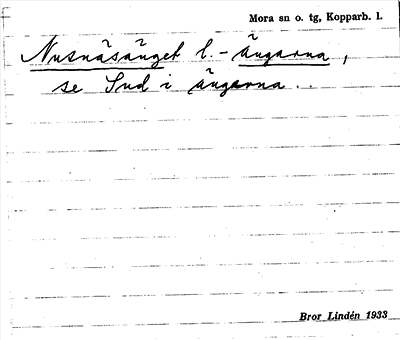 Mora sn o. tg, Kopparb. l.
Nusnäsänget l. - ängarna,
se Sud i ängarna..
Bror Lindén 1933